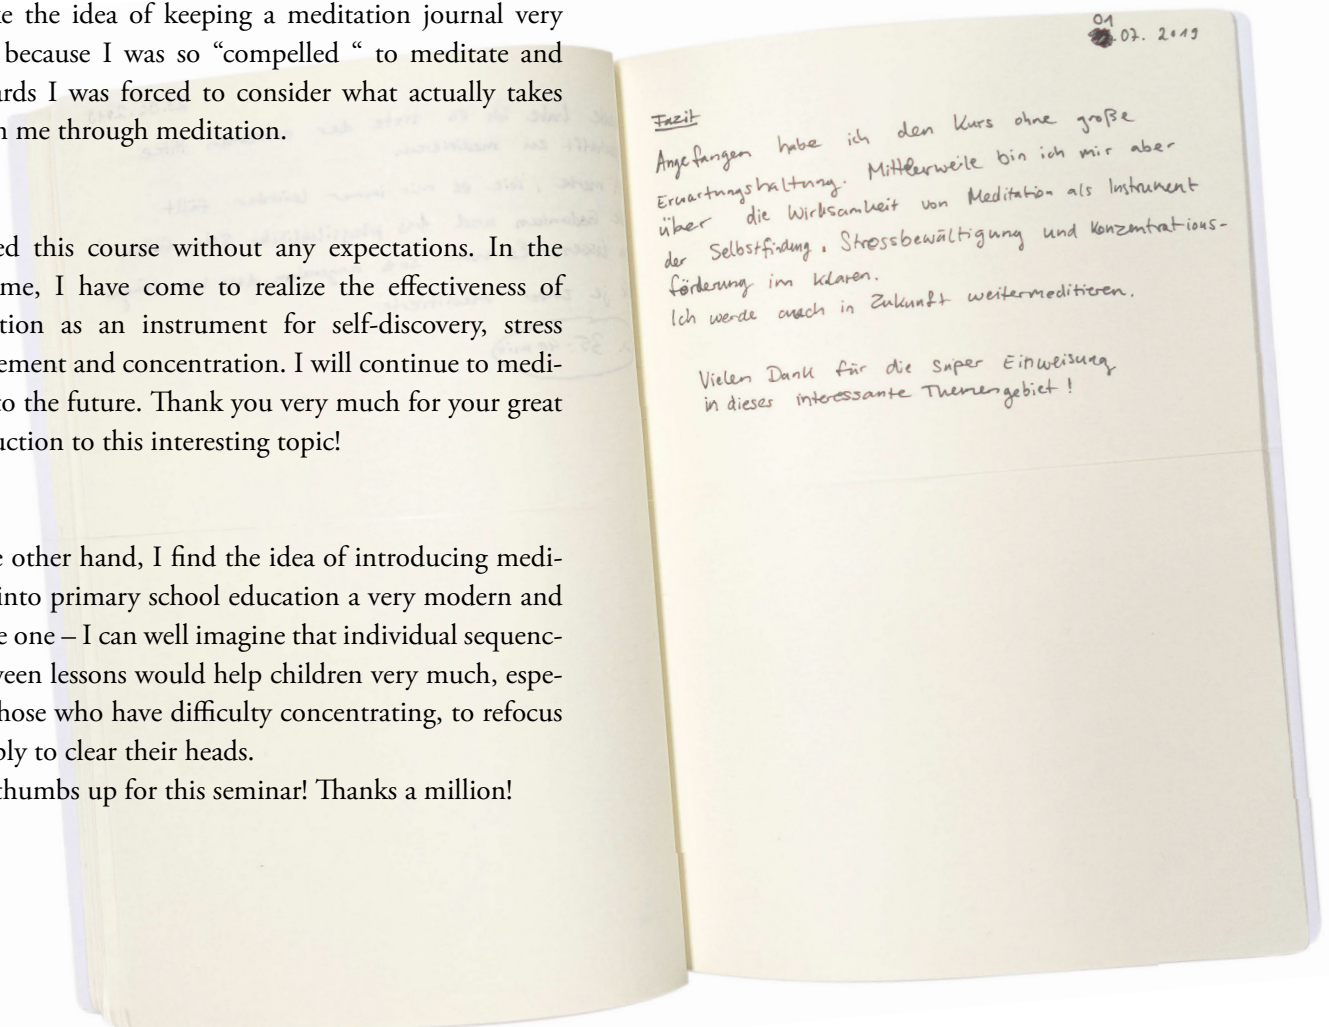 ke the idea of keeping a meditation journal very
because I was so “compelled “ to meditate and
ards I was forced to consider what actually takes
n me through meditation.
ed this course without any expectations. In the
me, I have come to realize the effectiveness of
tion as an instrument for self-discovery, stress
ement and concentration. I will continue to medi-
to the future. Thank you very much for your great
uction to this interesting topic!
e other hand, I find the idea of introducing medi-
into primary school education a very modern and
e one – I can well imagine that individual sequenc-
veen lessons would help children very much, espe-
hose who have difficulty concentrating, to refocus
ply to clear their heads.
thumbs up for this seminar! Thanks a million!
01
07. 2019
Fazit
Angefangen habe ich den Kurs ohne große
Erwartungshaltung. Mittlerweile bin ich mir aber
über die Wirksamkeit von Meditation als Instrument
der Selbstfindung, Stressbewältigung und Konzentrations-
förderung im Klaren.
Ich werde auch in Zukunft weitermeditieren.
Vielen Dank für die super Einweisung
in dieses interessante Themengebiet!